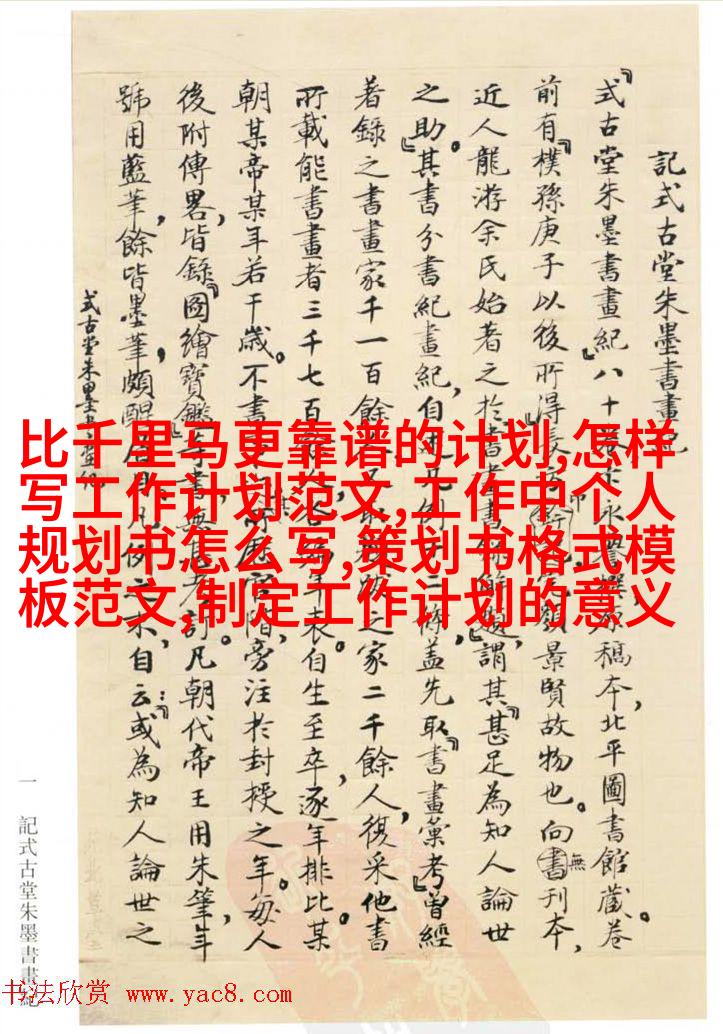 記式古堂朱墨書畫紀
『式古堂朱墨書畫紀』八十卷卞永譽撰原稿本,北平圖書館藏。卷
前有『樸孫庚子以後所得』長方印完顏景賢故物也。向無刊本,
近人龍游余氏始著之於書畫書錄解題,謂其『甚足為知人論世
之助』。其書分書紀畫紀,自凡例十二條,蓋先取『書畫彙考』曾經
著錄之書畫家千一百餘題跋之家二千餘人,復采他書
所載能書畫者三千七百餘人,各編年表。自生至卒,逐年排比某
朝某帝某年若干歲。不書官階,旁注於封授之年。每人
後附傳畧,皆錄『圖繪寶鑑』等書無考訂。凡朝代帝王用朱筆,年
號用藍筆,餘皆墨筆,頗醒眉目。凡例之末,自云:或為知人論世之
式古堂朱墨書畫紀
一 記式古堂朱墨書畫紀
比千里马更靠谱的计划,怎样
写工作计划范文,工作中个人
规划书怎么写,策划书格式模
板范文,制定工作计划的意义
书法欣赏 www.yac8.com